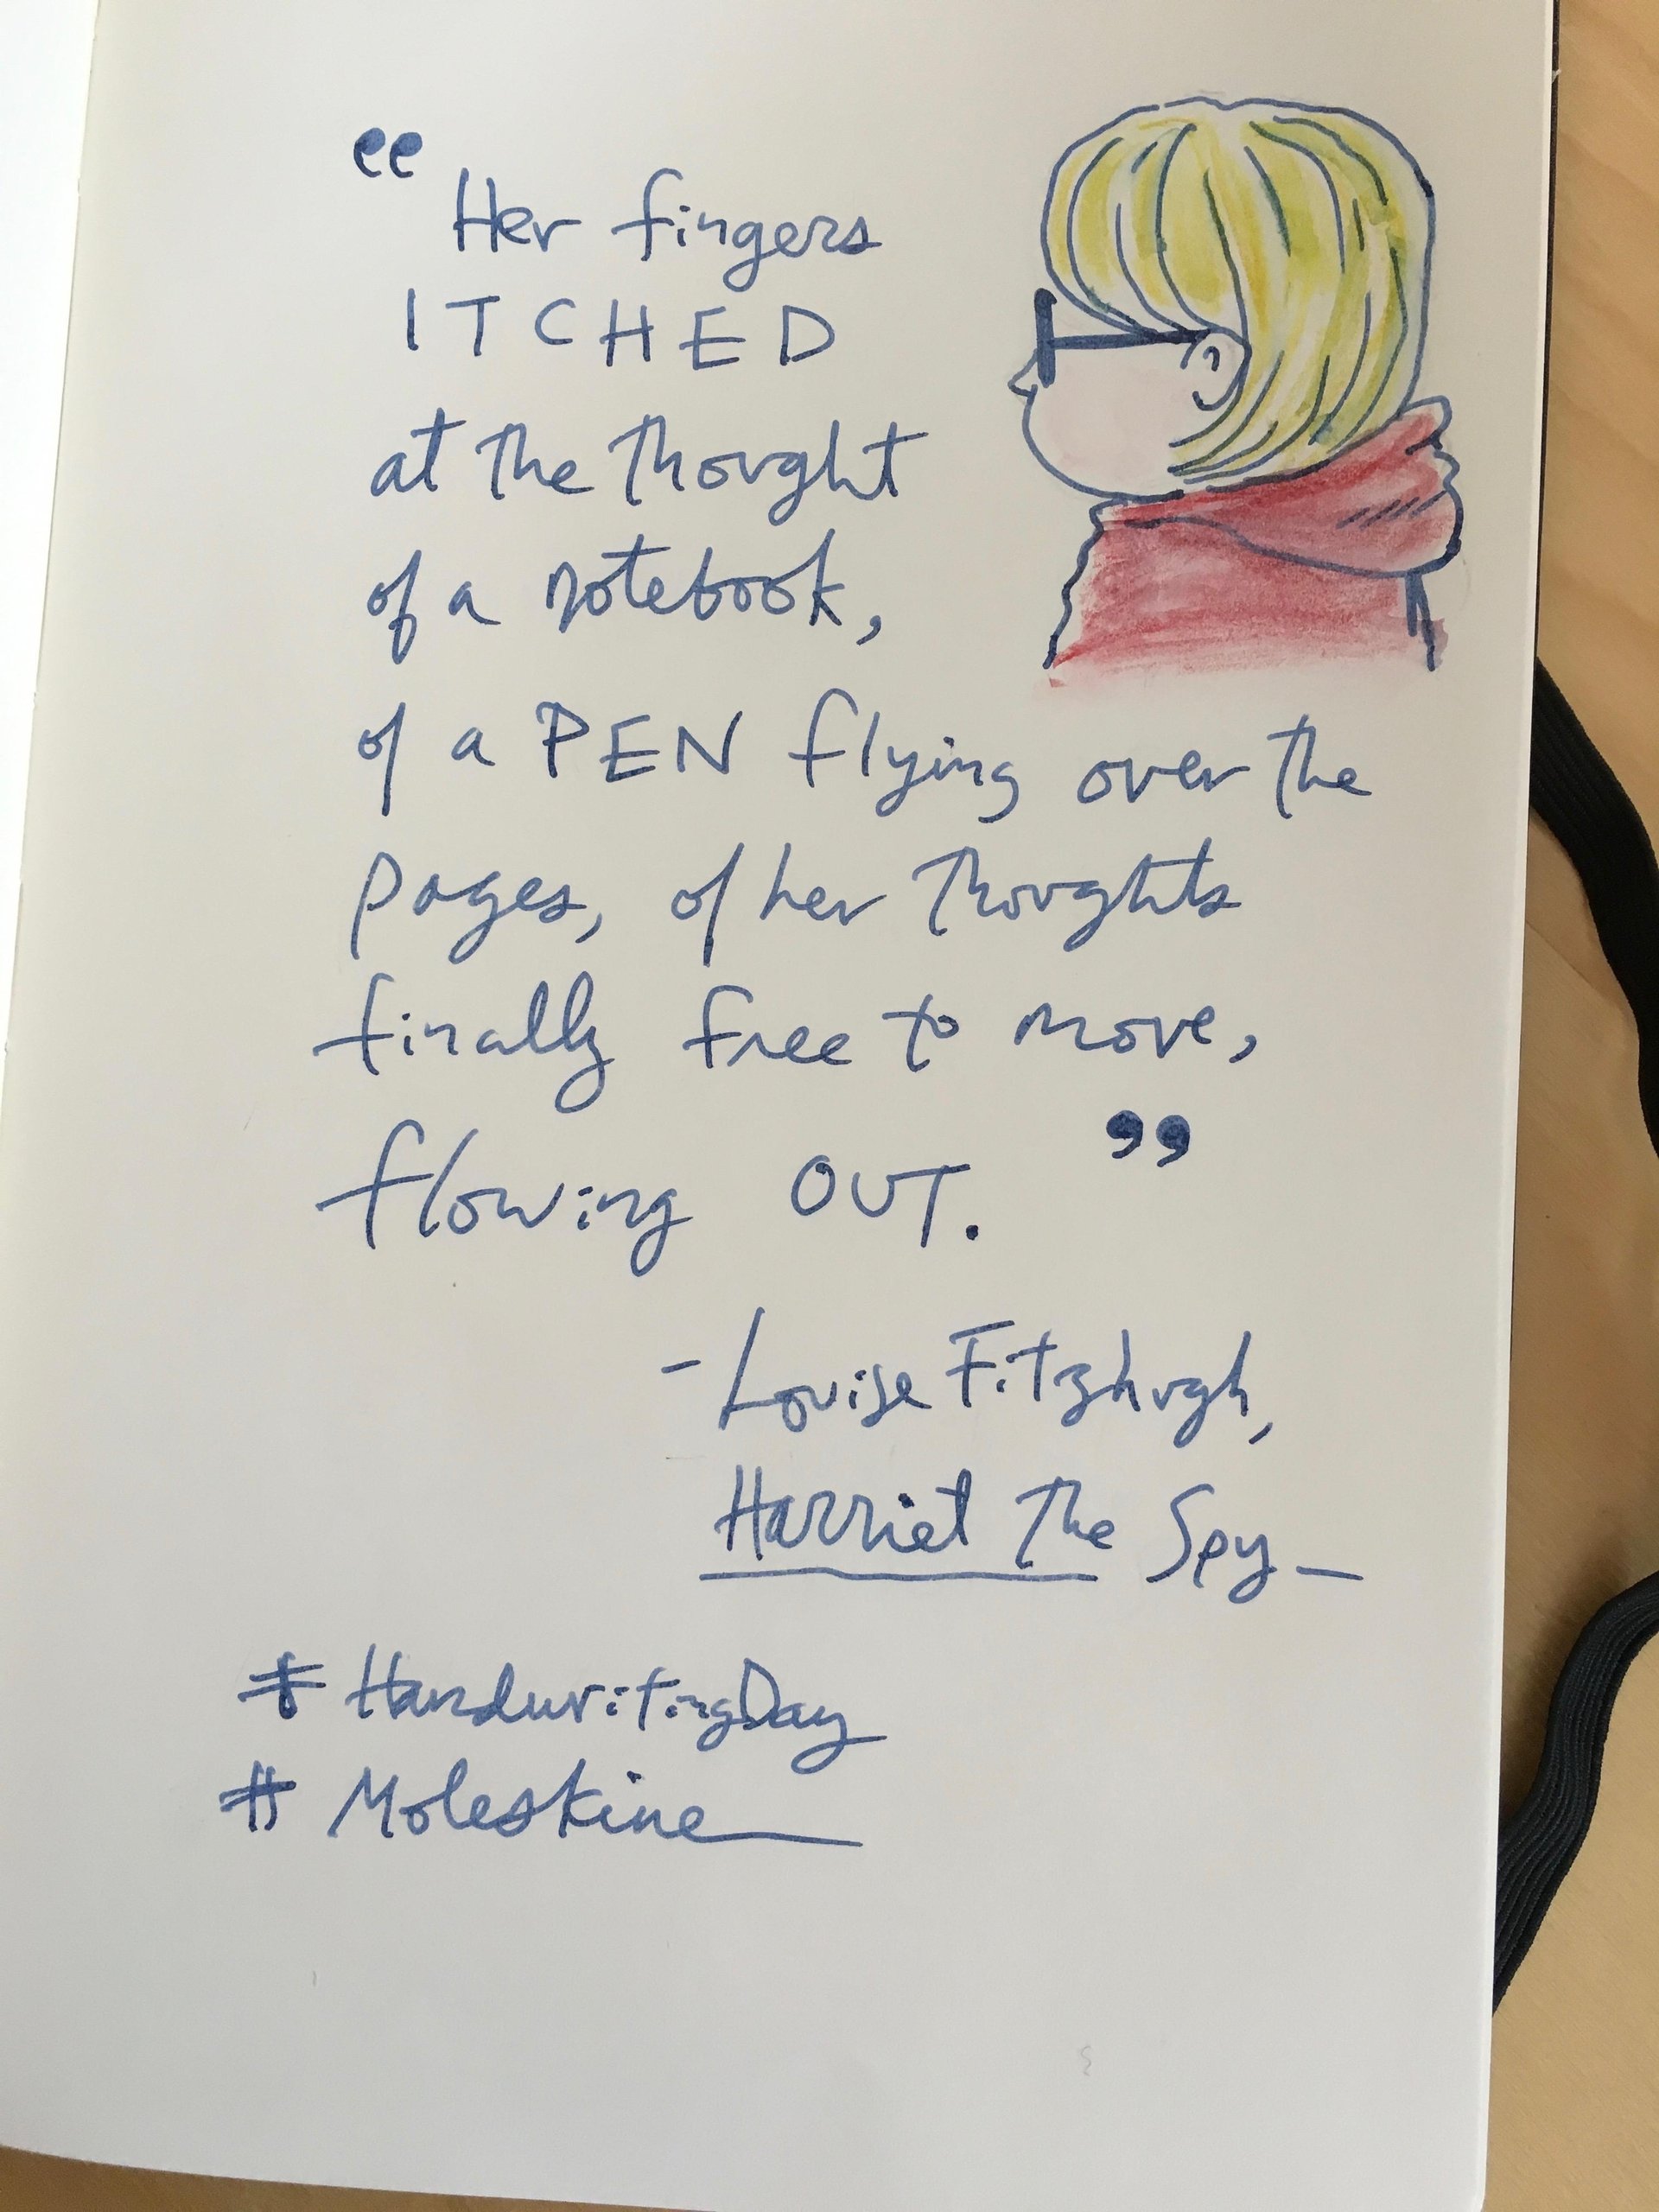 “Her fingers
ITCHED
at the thought
of a notebook,
of a PEN flying over the
pages, of her thoughts
finally free to move,
flowing OUT.”
- Louise Fitzhugh,
Harriet the Spy –
#HandwritingDay
#Moleskine